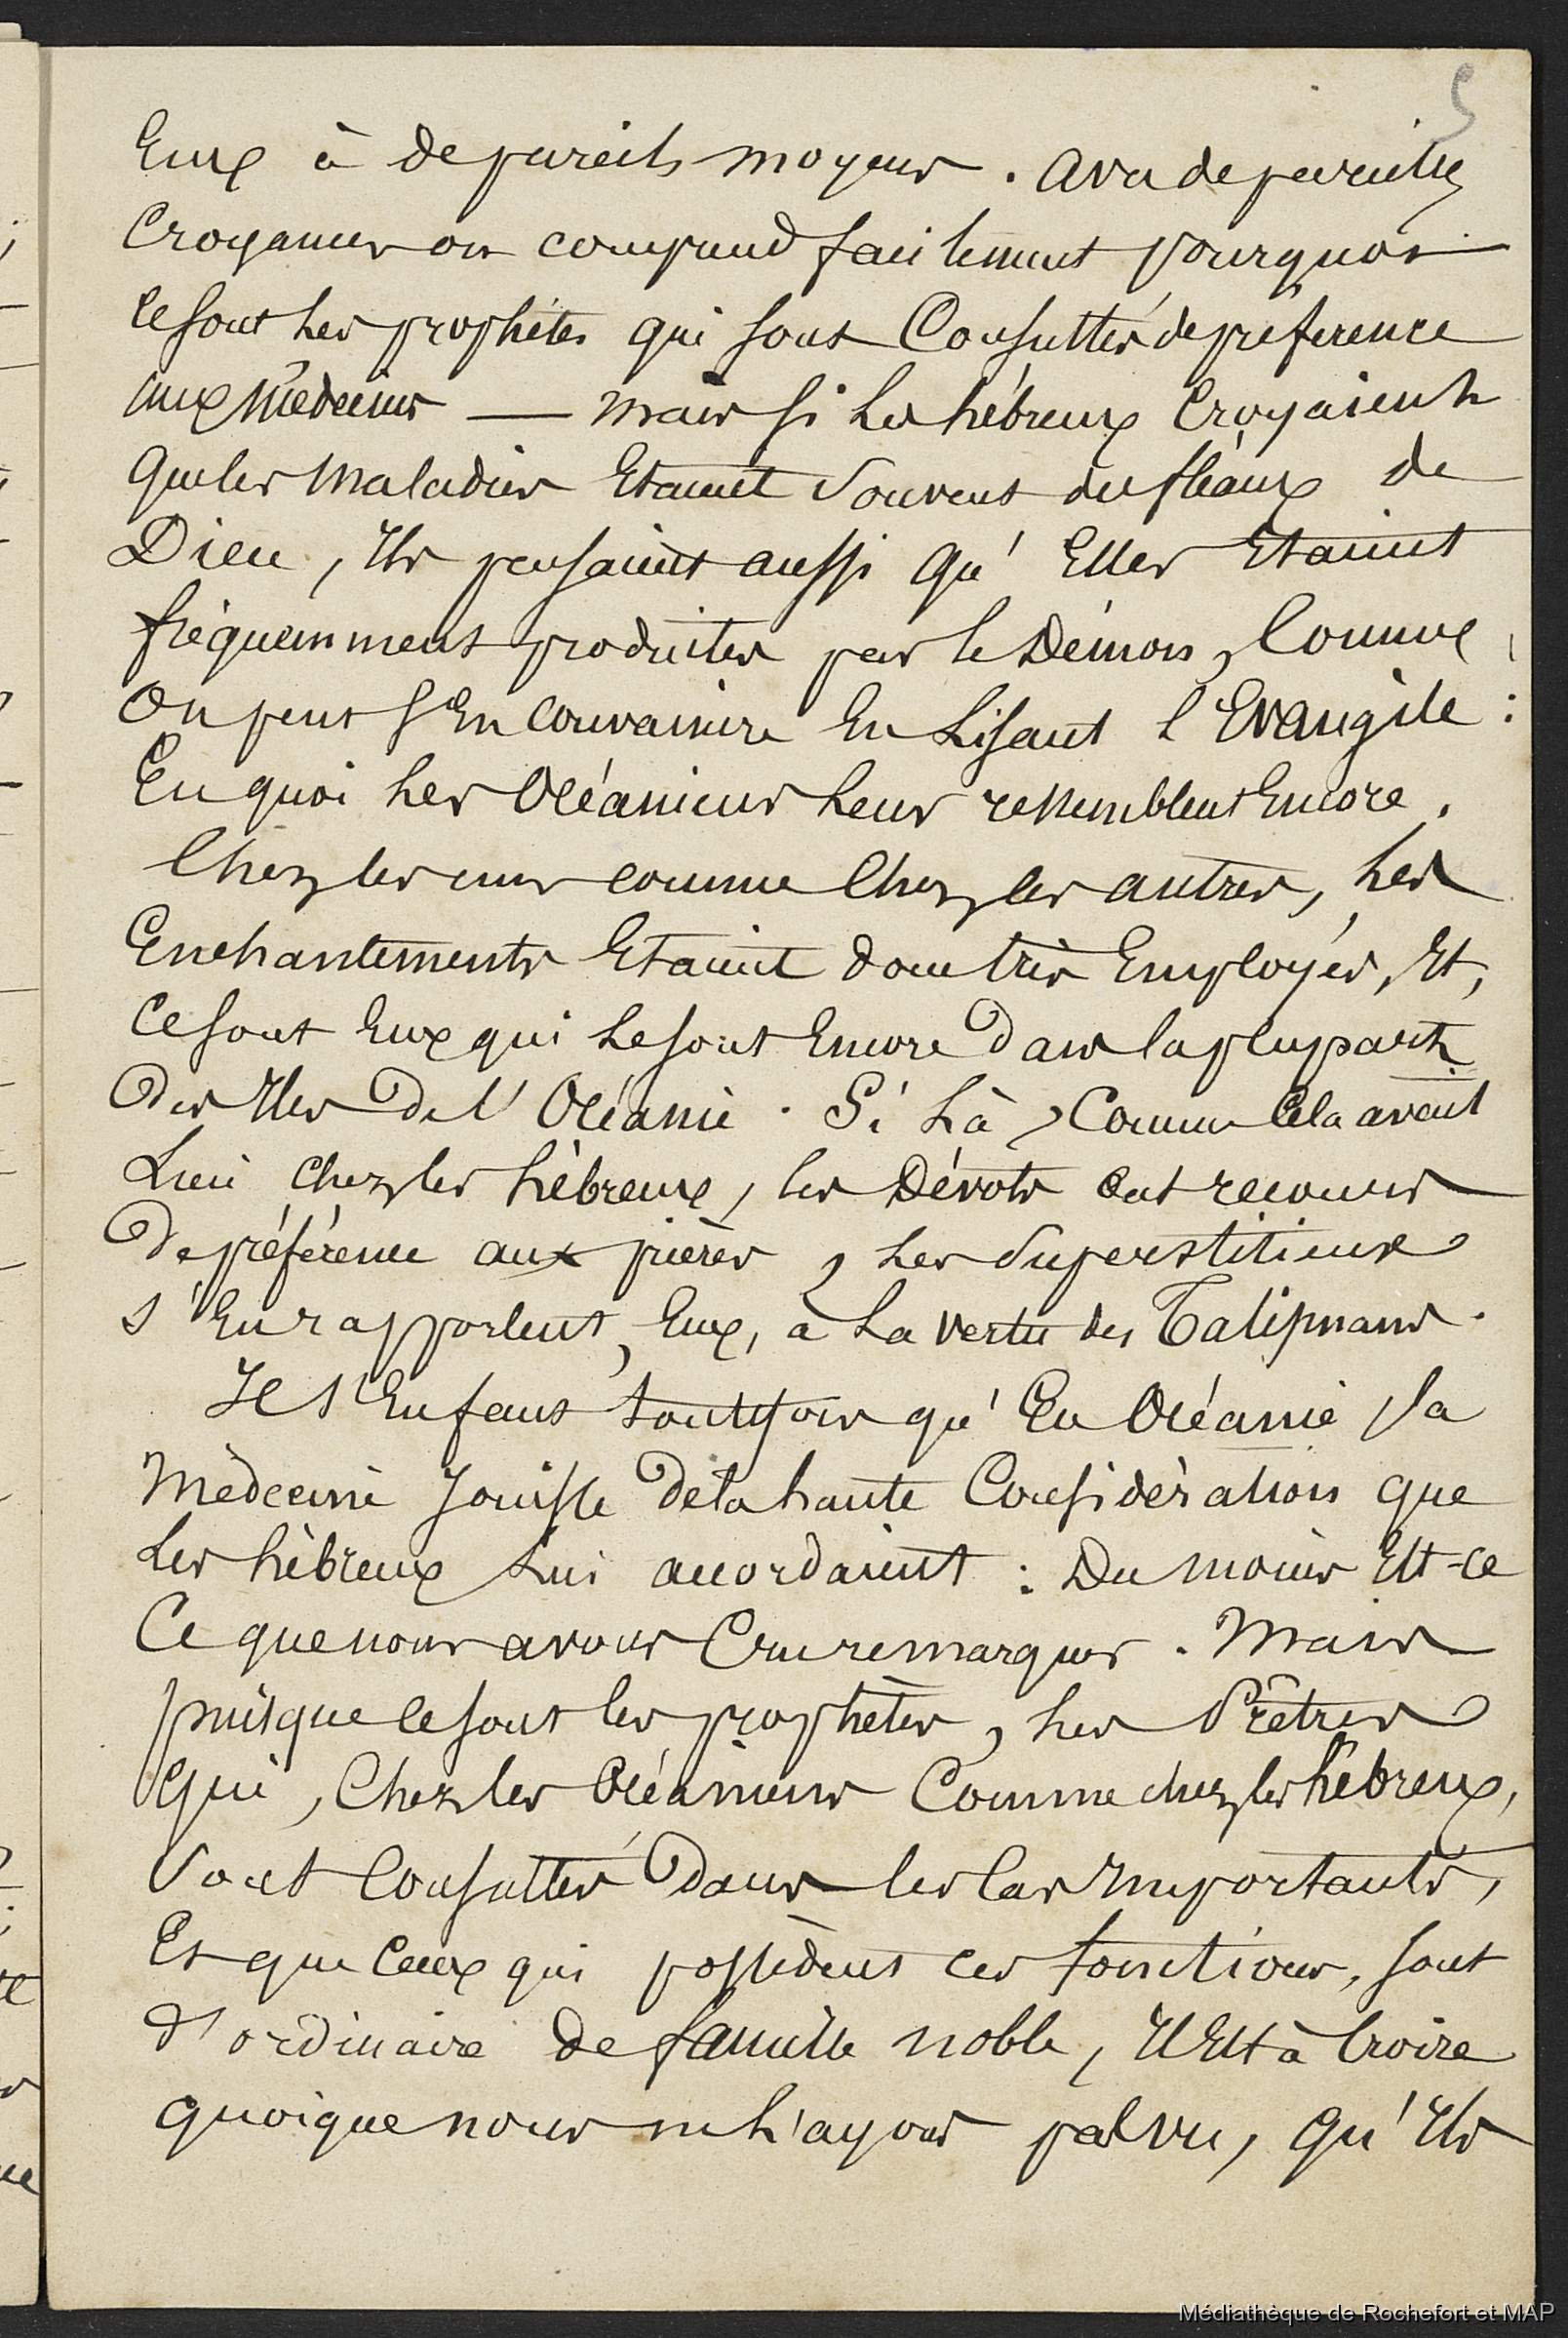 5
Eux à de pareils moyens. Avec de pareilles
Croyances on comprend facilement pourquoi
ce sont les prophètes qui sont Consultés de préference
aux Médecins — mais si les hébreux Croyaient
que les Maladies Etaient Souvent des fléaux de
Dieu, Ils pensaient aussi qu'Elles Etaient
fréquemment produites par le Démon, Comme
On peut s'En Convaincre En Lisant l'Evangile :
En quoi les Océaniens leur ressemblent Encore.
Chez les uns comme Chez les autres, les
Enchantements Etaient donc très Employés, Et,
Ce sont Eux qui le sont Encore dans la plupart
Des Iles De l'Océanie. Si là, Comme Cela avait
Lieu Chez les hébreux, les Dévots ont recours
De préférence aux prières, les Superstitieux
s'En rapportent, Eux, à La vertu des Talismans.
Il s'En faut toutefois qu'En Océanie la
Médecine Jouisse De la haute Considération que
Les hébreux Lui accordaient : Du moins Est-ce
Ce que nous avons Cru remarquer. Mais
puisque ce sont les prophètes, les Prêtres
qui, Chez les Océaniens Comme chez les hébreux,
Sont Consultés Dans les Cas Importants,
Et que Ceux qui possèdent ces fonctions, sont
d'ordinaire de famille noble, Il Est à Croire
quoique nous ne l'ayons pas vu, qu'Ils
Médiathèque de Rochefort et MAP